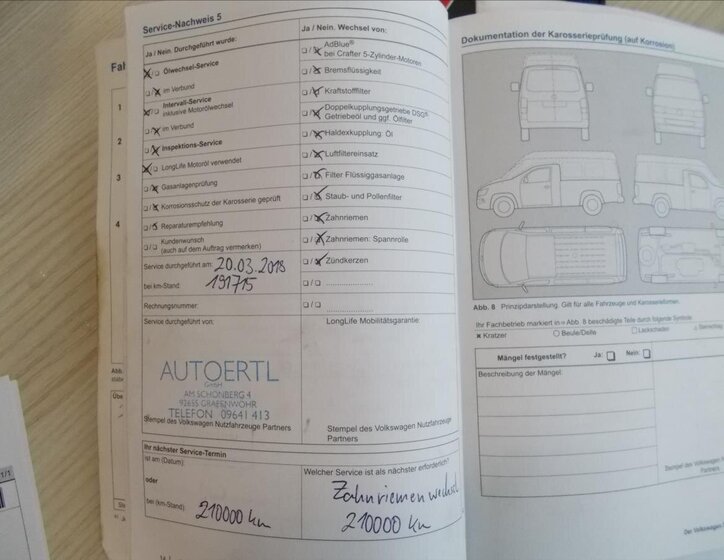 Service-Nachweis 5
Ja / Nein. Durchgeführt wurde:
Ölwechsel-Service
im Verbund
Intervall-Service
inklusive Motorölwechsel
im Verbund
Inspektions-Service
LongLife Motoröl verwendet
Gasanlagenprüfung
Korrosionsschutz der Karosserie geprüft
Reparaturempfehlung
Kundenwunsch
(auch auf dem Auftrag vermerken)
Service durchgeführt am: 20.03.2018
bei km-Stand: 191715
Rechnungsnummer:
Service durchgeführt von:
AUTOERTL
GmbH
AM SCHÖNBERG 4
92655 GRAFENWÖHR
TELEFON 09641 413
Stempel des Volkswagen Nutzfahrzeuge Partners
Ja / Nein. Wechsel von:
AdBlue®
bei Crafter 5-Zylinder-Motoren
Bremsflüssigkeit
Kraftstofffilter
Doppelkupplungsgetriebe DSG®
Getriebeöl und ggf. Ölfilter
Haldexkupplung: Öl
Luftfiltereinsatz
Filter Flüssiggasanlage
Staub- und Pollenfilter
Zahnriemen
Zahnriemen: Spannrolle
Zündkerzen
LongLife Mobilitätsgarantie:
Stempel des Volkswagen Nutzfahrzeuge
Partners
Ihr nächster Service-Termin
ist am (Datum):
oder
bei (km-Stand): 210000 km
Welcher Service ist als nächster erforderlich?
Zahnriemen wechsel
210000 km
Fah
1
2
3
4
Abb.
1/1
Dokumentation der Karosserieprüfung (auf Korrosion)
Abb. 8 Prinzipdarstellung. Gilt für alle Fahrzeuge und Karosserieformen.
Ihr Fachbetrieb markiert in Abb. 8 beschädigte Teile durch folgende Symbole:
Kratzer Beule/Delle Lackschaden
Mängel festgestellt? Ja: Nein:
Beschreibung der Mängel:
Stempel des Volkswagen
Der Volkswagen